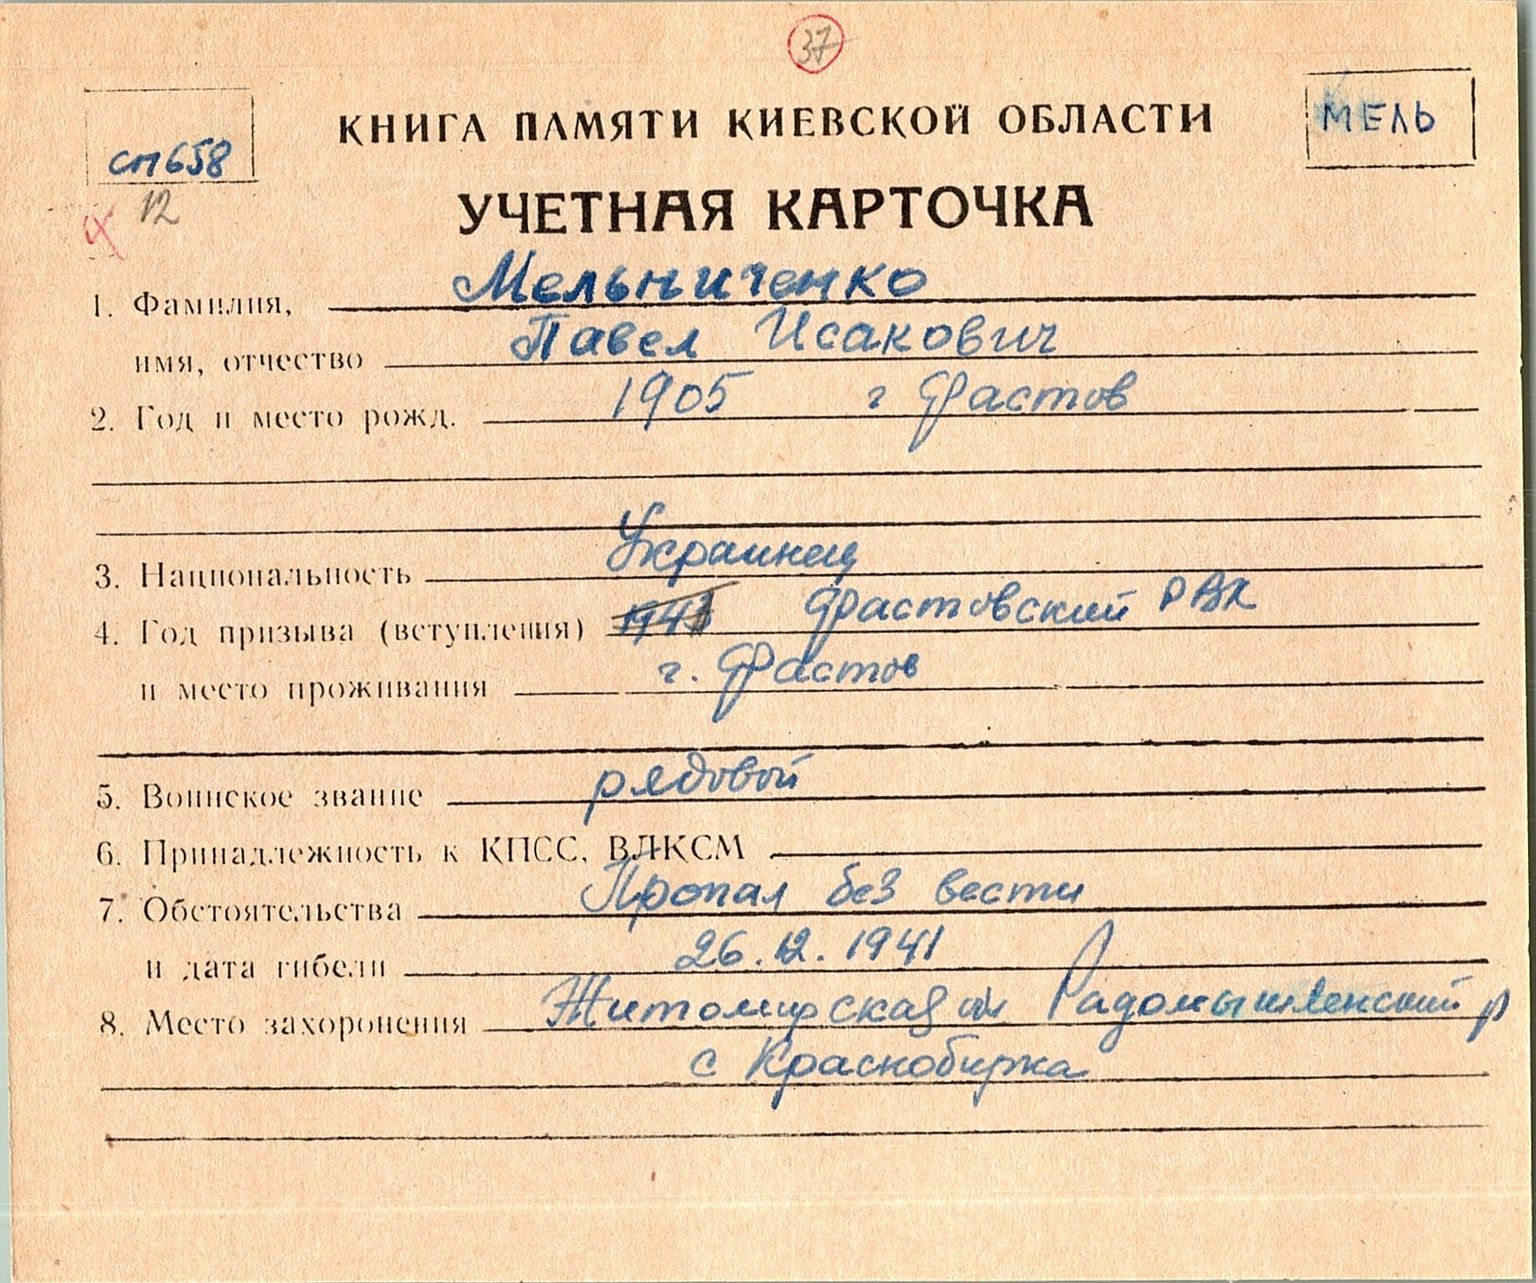 37
КНИГА ПАМЯТИ КИЕВСКОЙ ОБЛАСТИ
МЕЛЬ
сп658
12
УЧЕТНАЯ КАРТОЧКА
1. Фамилия, Мельниченко
имя, отчество Павел Исакович
2. Год и место рожд. 1905 г Фастов
3. Национальность Украинец
4. Год призыва (вступления) 1941 Фастовский РВК
и место проживания г. Фастов
5. Воинское звание рядовой
6. Принадлежность к КПСС, ВЛКСМ
7. Обстоятельства Пропал без вести
и дата гибели 26.12.1941
8. Место захоронения Житомирская Радомышленский р
с Краснобирка